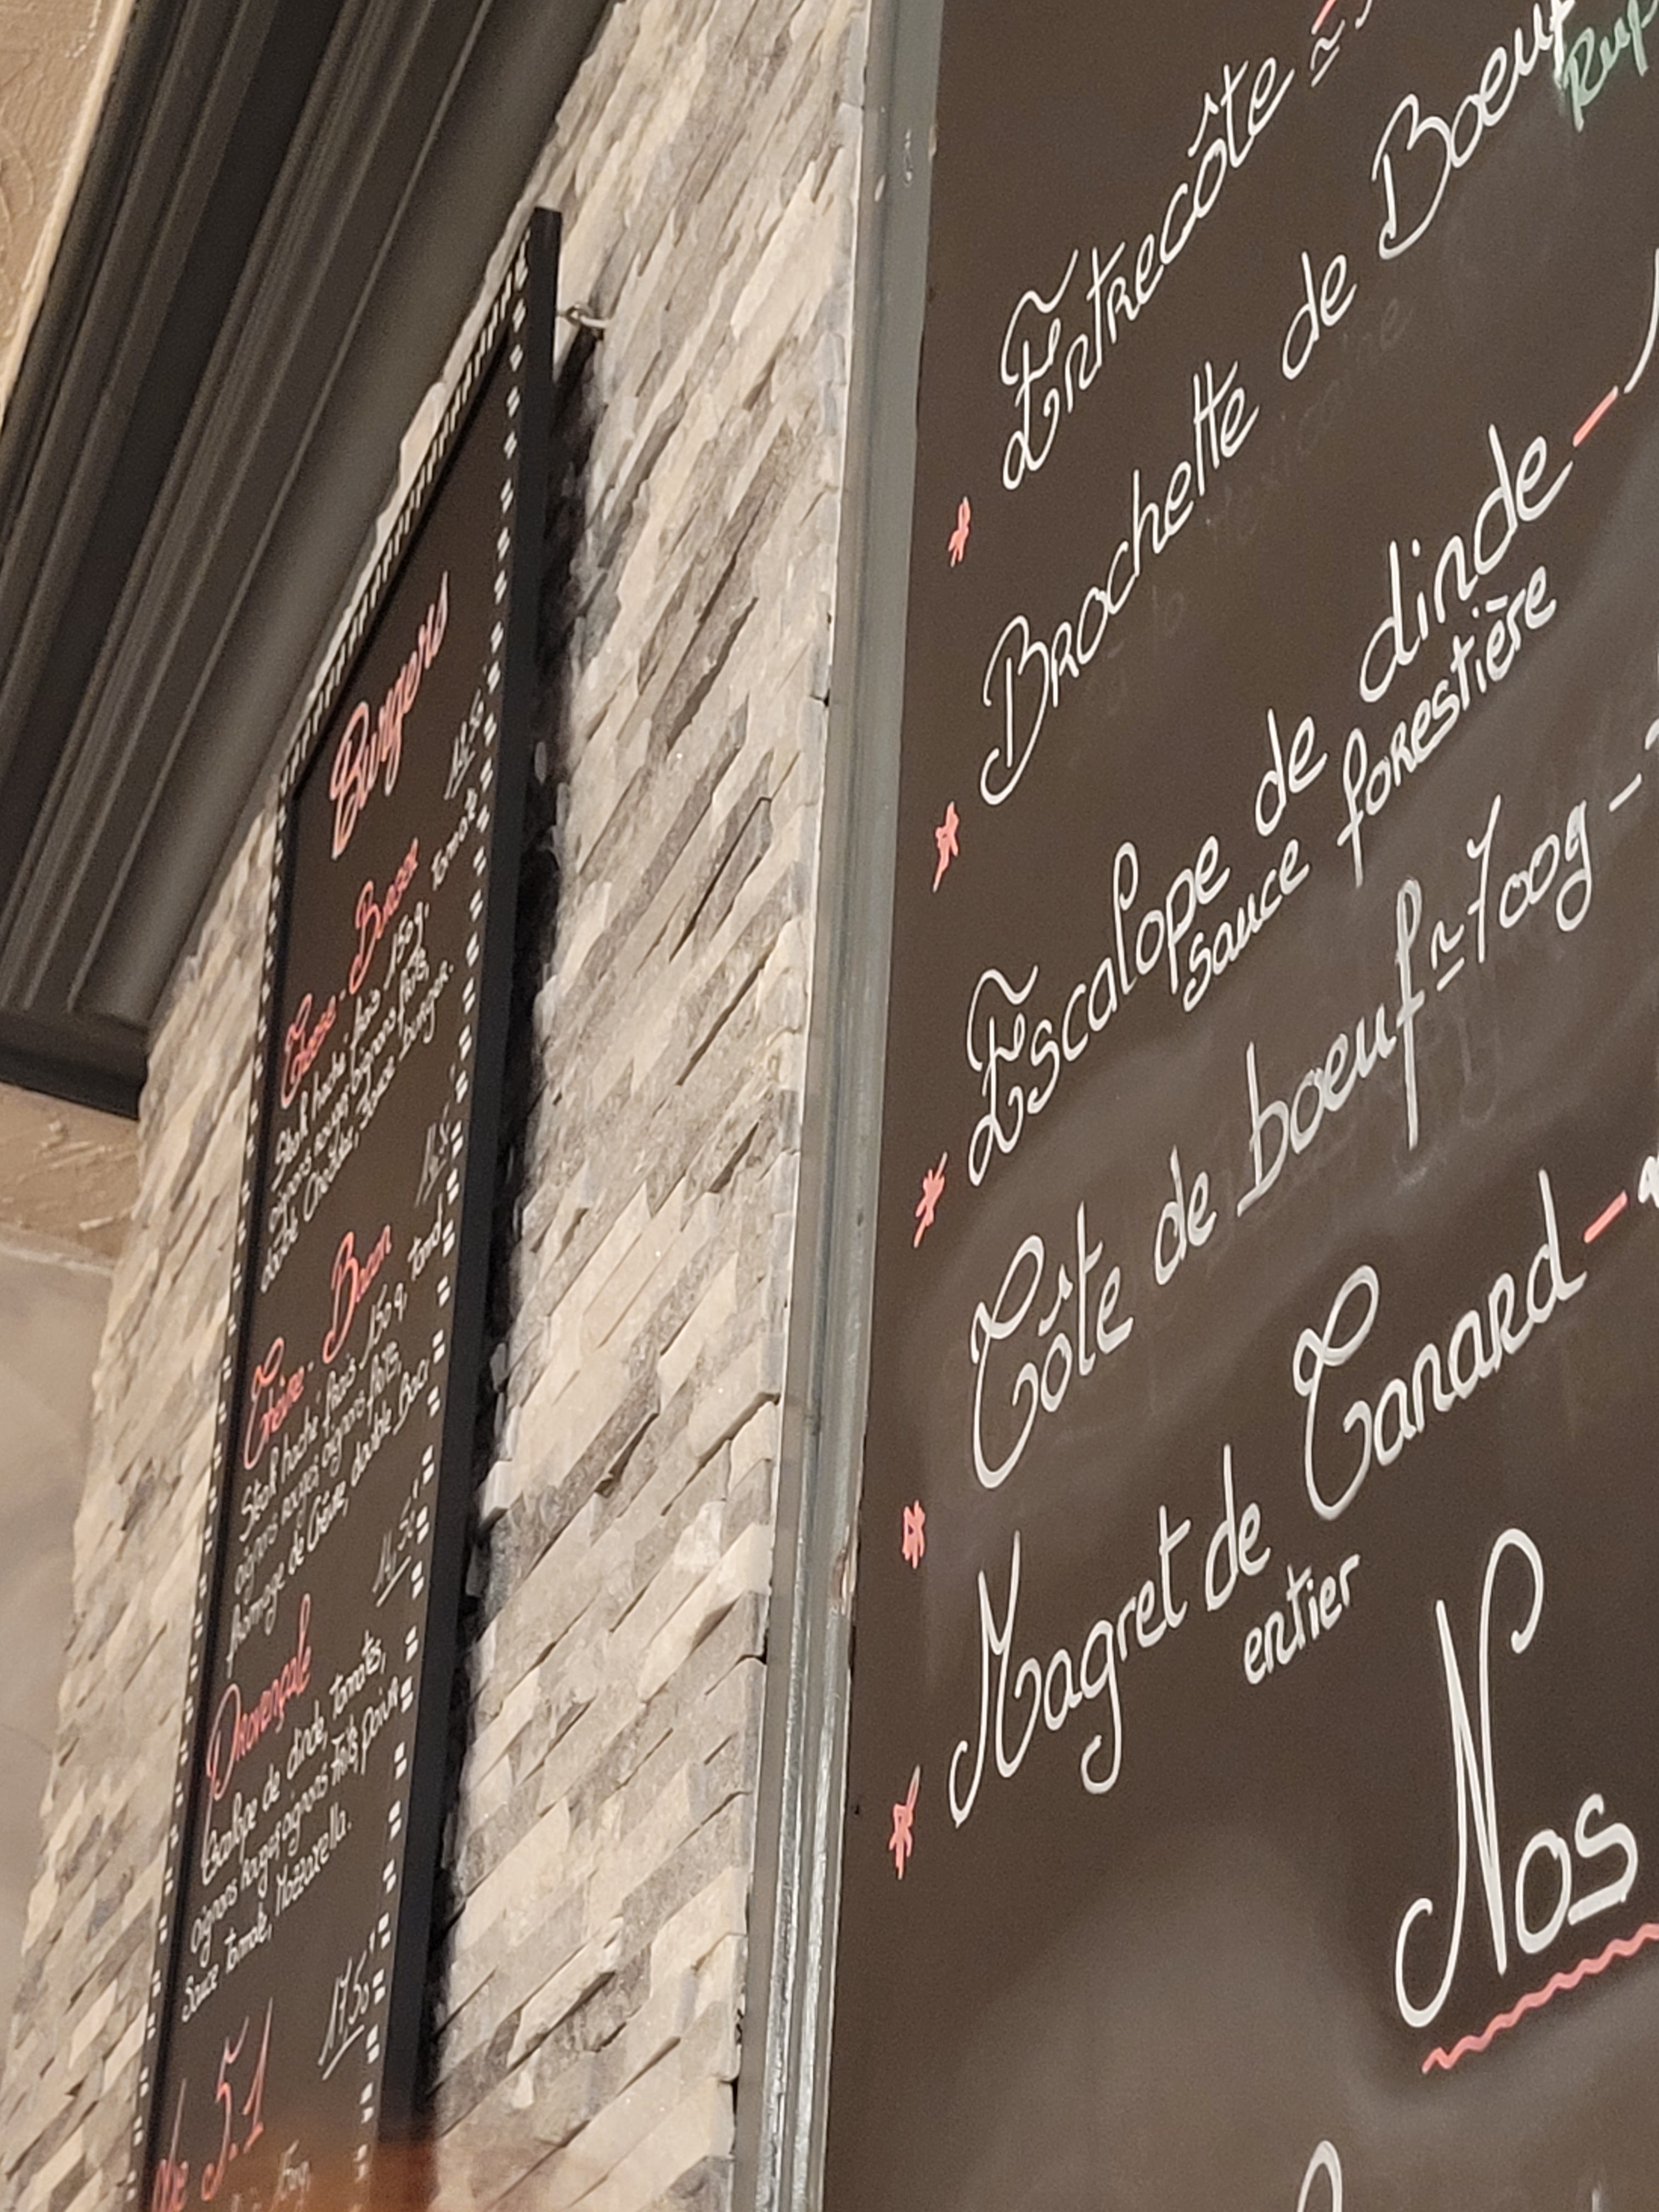 Burgers
Steak haché frais 150g,
oignons rouges oignons frits,
double Cheddar, Sauce burger.
Steak haché frais 150g, tomate
oignons rouges oignons frits,
fromage de Chèvre, double Bacon
14,50
Provençale
Escalope de dinde, tomates,
oignons rouges oignons frits poivron
Sauce tomate, Mozzarella.
17,50
5.1
Entrecôte
Brochette de Boeuf
Rup
Escalope de dinde -
sauce forestière
Côte de boeuf ~ 700g -
Magret de Canard -
entier
Nos